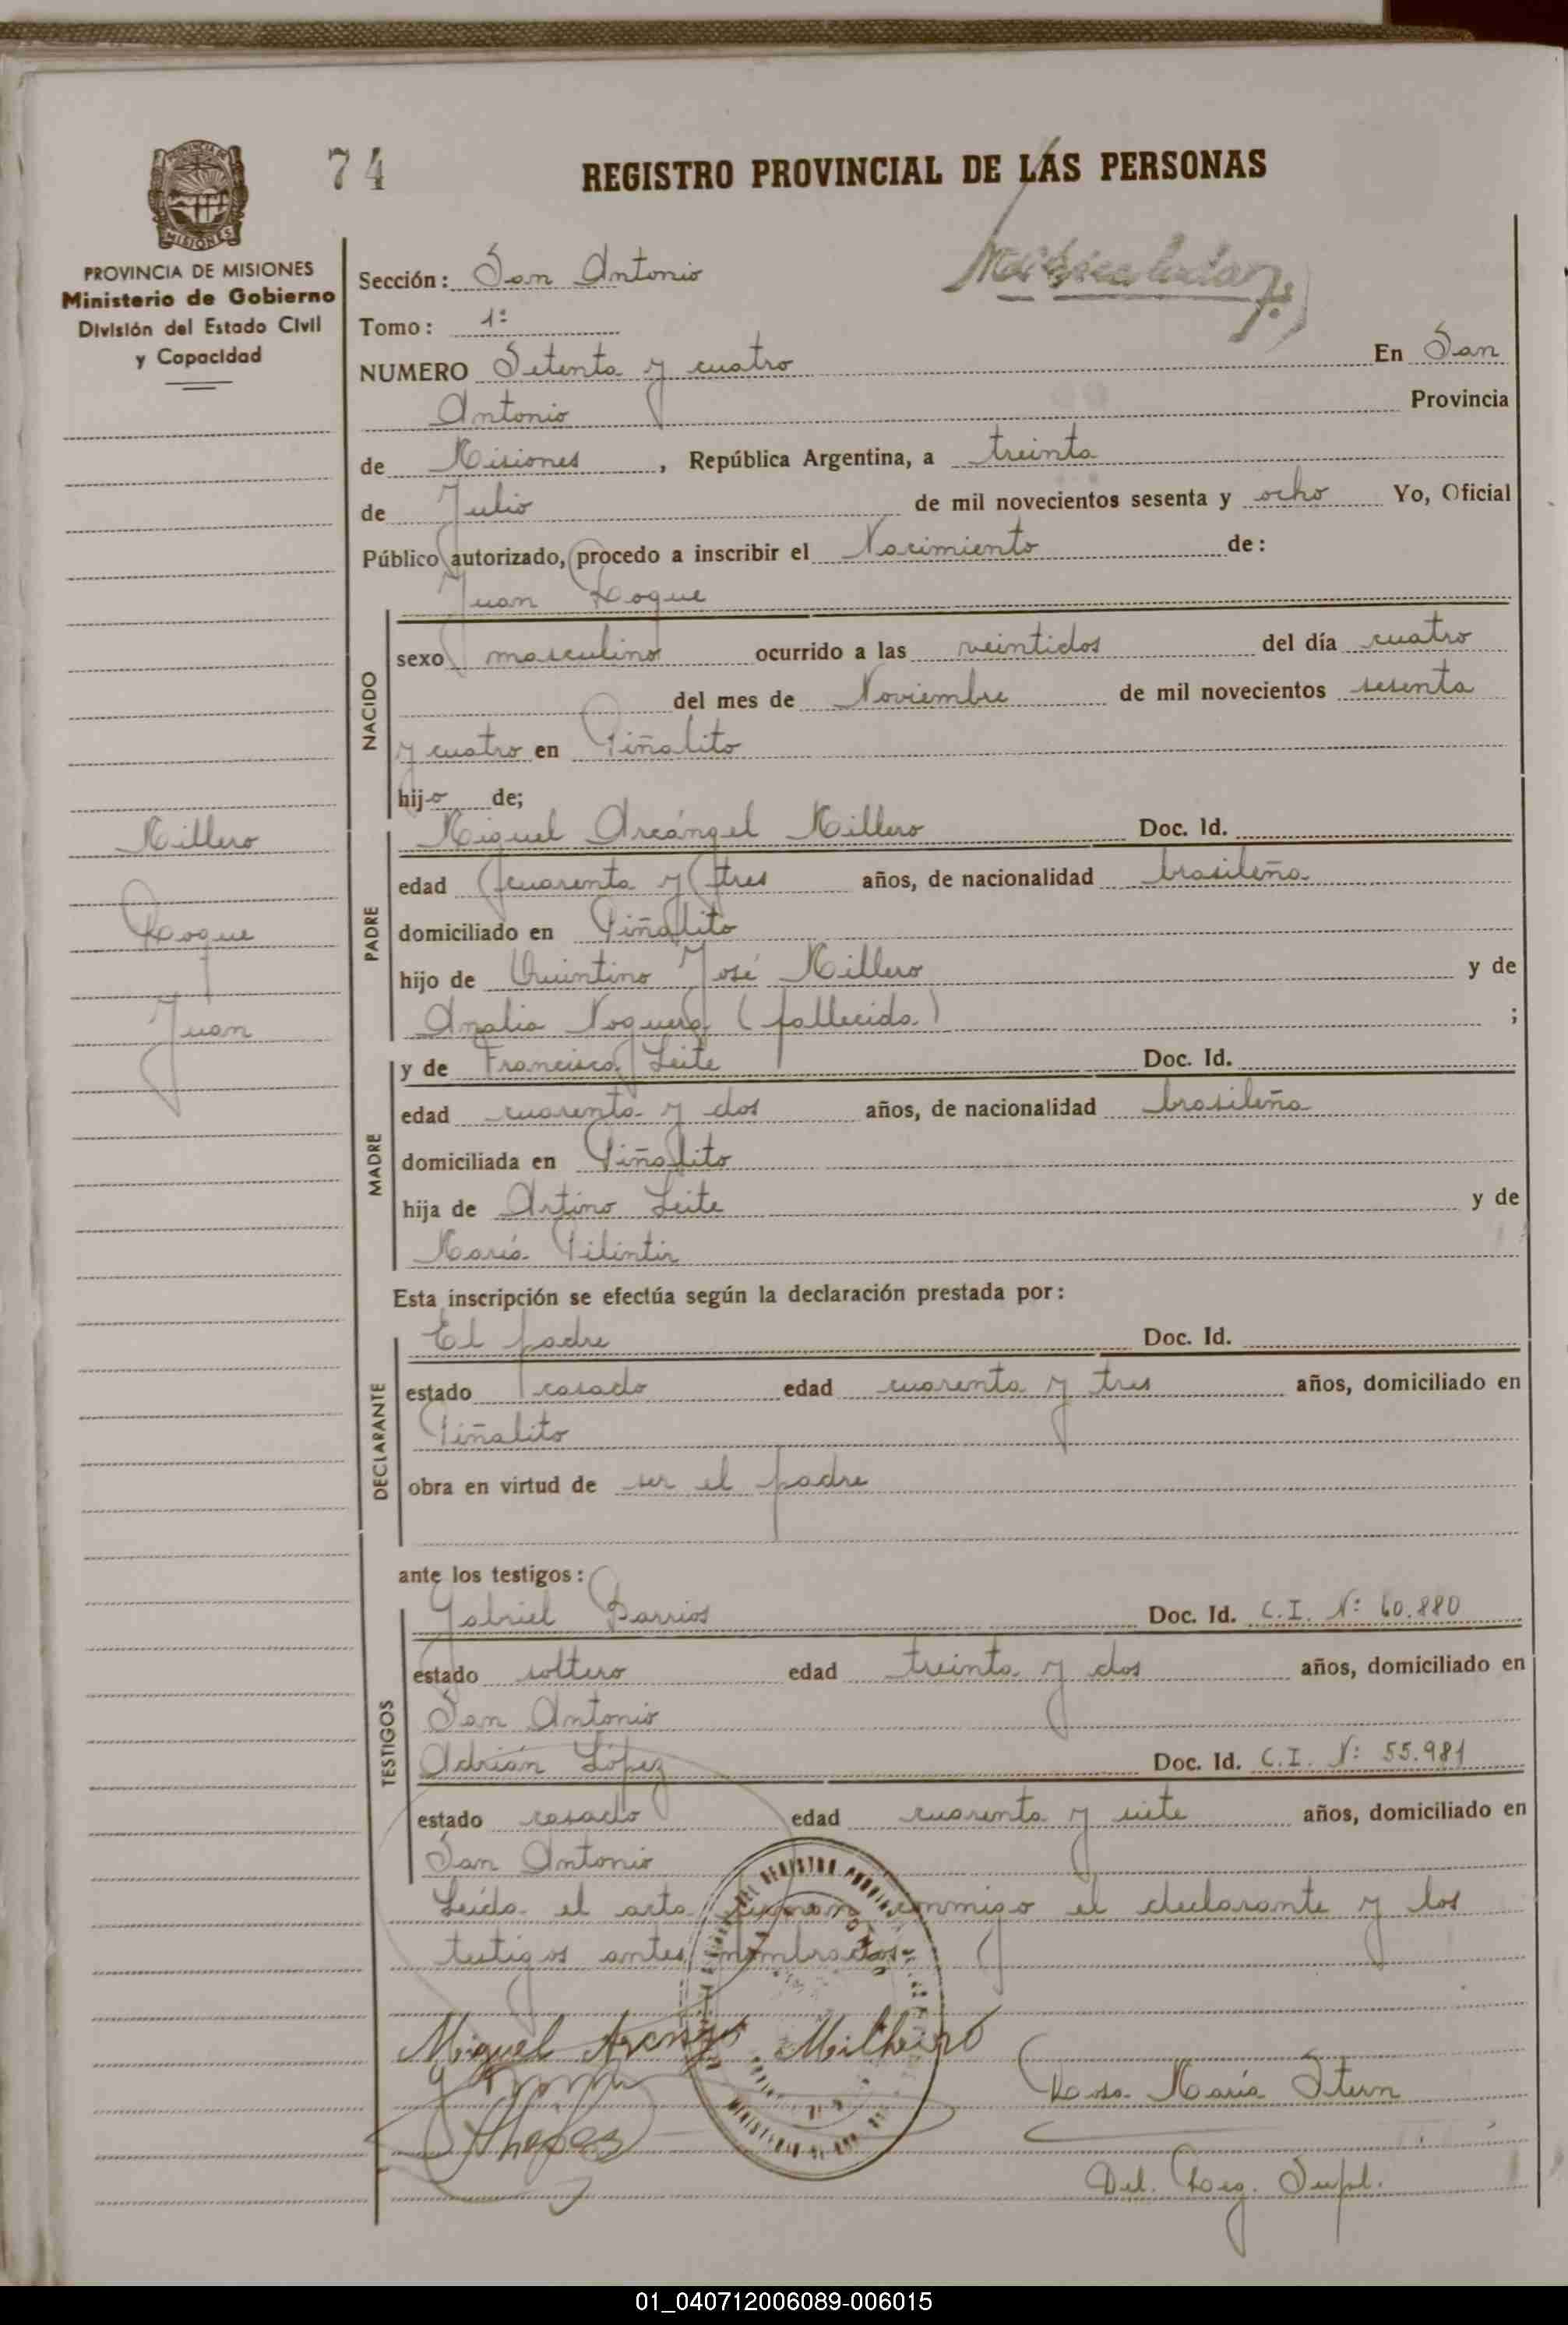 74
REGISTRO PROVINCIAL DE LAS PERSONAS
PROVINCIA DE MISIONES
Ministerio de Gobierno
División del Estado Civil
y Capacidad
Sección: San Antonio
Tomo: 1º
NUMERO Setenta y cuatro En San
Antonio Provincia
de Misiones, República Argentina, a treinta
de Julio de mil novecientos sesenta y ocho Yo, Oficial
Público autorizado, procedo a inscribir el Nacimiento de:
Juan Roque
NACIDO
sexo masculino ocurrido a las veintidos del día cuatro
del mes de Noviembre de mil novecientos sesenta
y cuatro en Piñalito
hijo de;
Millero
Roque
Juan
PADRE
Miguel Arcángel Millero Doc. Id.
edad cuarenta y tres años, de nacionalidad brasileña
domiciliado en Piñalito
hijo de Quintino José Millero y de
Analia Noguera (fallecida) ;
MADRE
y de Francisca Leite Doc. Id.
edad cuarenta y dos años, de nacionalidad brasileña
domiciliada en Piñalito
hija de Artino Leite y de
María
Esta inscripción se efectúa según la declaración prestada por:
DECLARANTE
El padre Doc. Id.
estado casado edad cuarenta y tres años, domiciliado en
Piñalito
obra en virtud de ser el padre
ante los testigos:
TESTIGOS
Gabriel Barrios Doc. Id. C.I. Nº 60.880
estado soltero edad treinta y dos años, domiciliado en
San Antonio
Adrián López Doc. Id. C.I. Nº 55.981
estado casado edad cuarenta y siete años, domiciliado en
San Antonio
Leída el acta firman conmigo el declarante y los
testigos antes nombrados.
Miguel Milheiro
Rosa María Stern
Del. Reg. Supl.
01_040712006089-006015